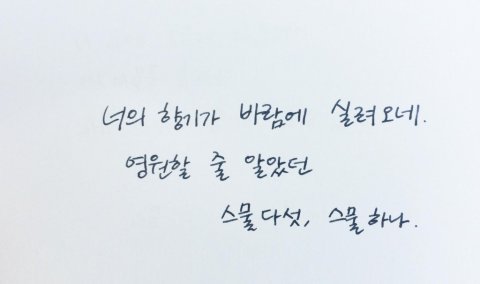 너의 향기가 바람에 실려오네.
영원할 줄 알았던
스물다섯, 스물하나.